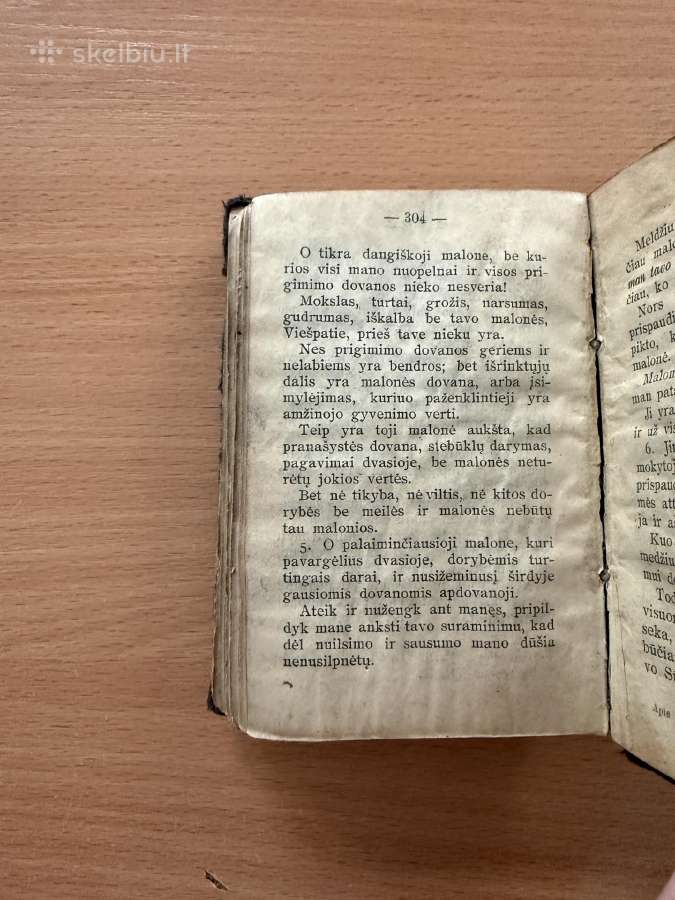 skelbiu.lt
— 304 —
O tikra dangiškoji malone, be ku-
rios visi mano nuopelnai ir visos pri-
gimimo dovanos nieko nesveria!
Mokslas, turtai, grožis, narsumas,
gudrumas, iškalba be tavo malonės,
Viešpatie, prieš tave nieku yra.
Nes prigimimo dovanos geriems ir
nelabiems yra bendros; bet išrinktųjų
dalis yra malonės dovana, arba įsi-
mylėjimas, kuriuo paženklintieji yra
amžinojo gyvenimo verti.
Teip yra toji malonė aukšta, kad
pranašystės dovana, stebūklų darymas,
pagavimai dvasioje, be malonės netu-
rėtų jokios vertės.
Bet nė tikyba, nė viltis, nė kitos do-
rybės be meilės ir malonės nebūtų
tau malonios.
5. O palaiminčiausioji malone, kuri
pavargėlius dvasioje, dorybėmis tur-
tingais darai, ir nusižeminusį širdyje
gausiomis dovanomis apdovanoji.
Ateik ir nužengk ant manęs, pripil-
dyk mane anksti tavo suraminimu, kad
dėl nuilsimo ir sausumo mano dūšia
nenusilpnėtų.
Meldžiu
čiau malo
man tavo
čiau, ko
Nors
prispaudi
pikto, k
malonė.
Malon
man pata
Ji yra
ir už vis
6. Ji
mokytoj
prispaud
mės att
ja ir a
Kuo
medžiu
mui de
Tod
visuom
seka,
būčia
vo Sū
Apie